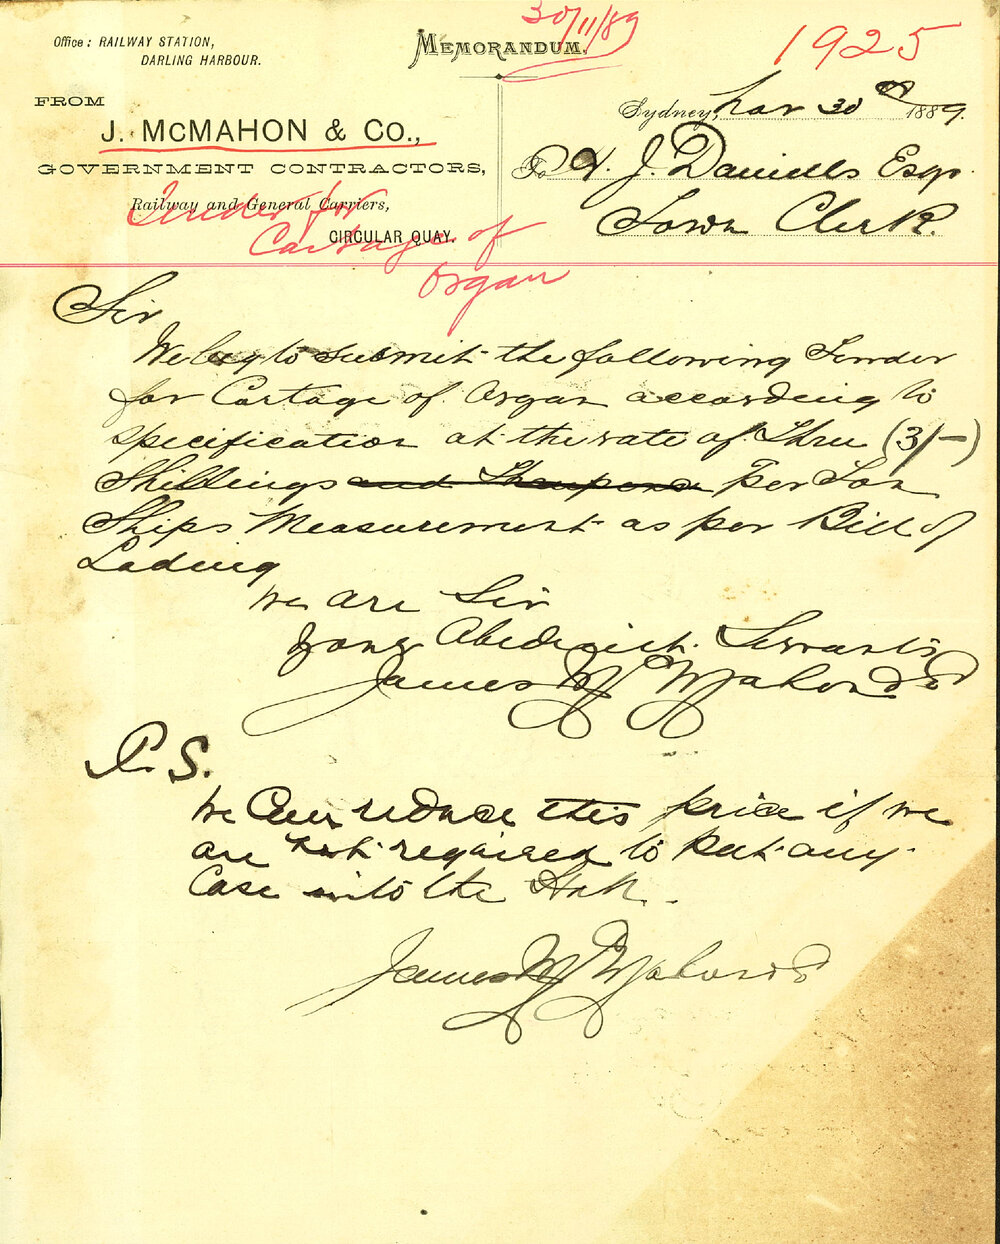 30/11/89
1925
Office: RAILWAY STATION,
DARLING HARBOUR.
MEMORANDUM.
FROM
J. McMAHON & Co.,
GOVERNMENT CONTRACTORS,
Railway and General Carriers,
CIRCULAR QUAY.
Tender for
Cartage of
Organ
Sydney, Nov 30th 1889.
To H. J. Daniells Esqr.
Town Clerk.
Sir
We beg to submit the following Tender
for Cartage of Organ according to
specification at the rate of Three (3/-)
Shillings and Thrupence Per Ton
Ships Measurement as per Bill of
Lading
We are Sir
Yours Abedient Servants
James McMahon & Co
P.S.
We Can reduce this price if we
are not regaired to put any
Case into the Hall.
James McMahon & Co